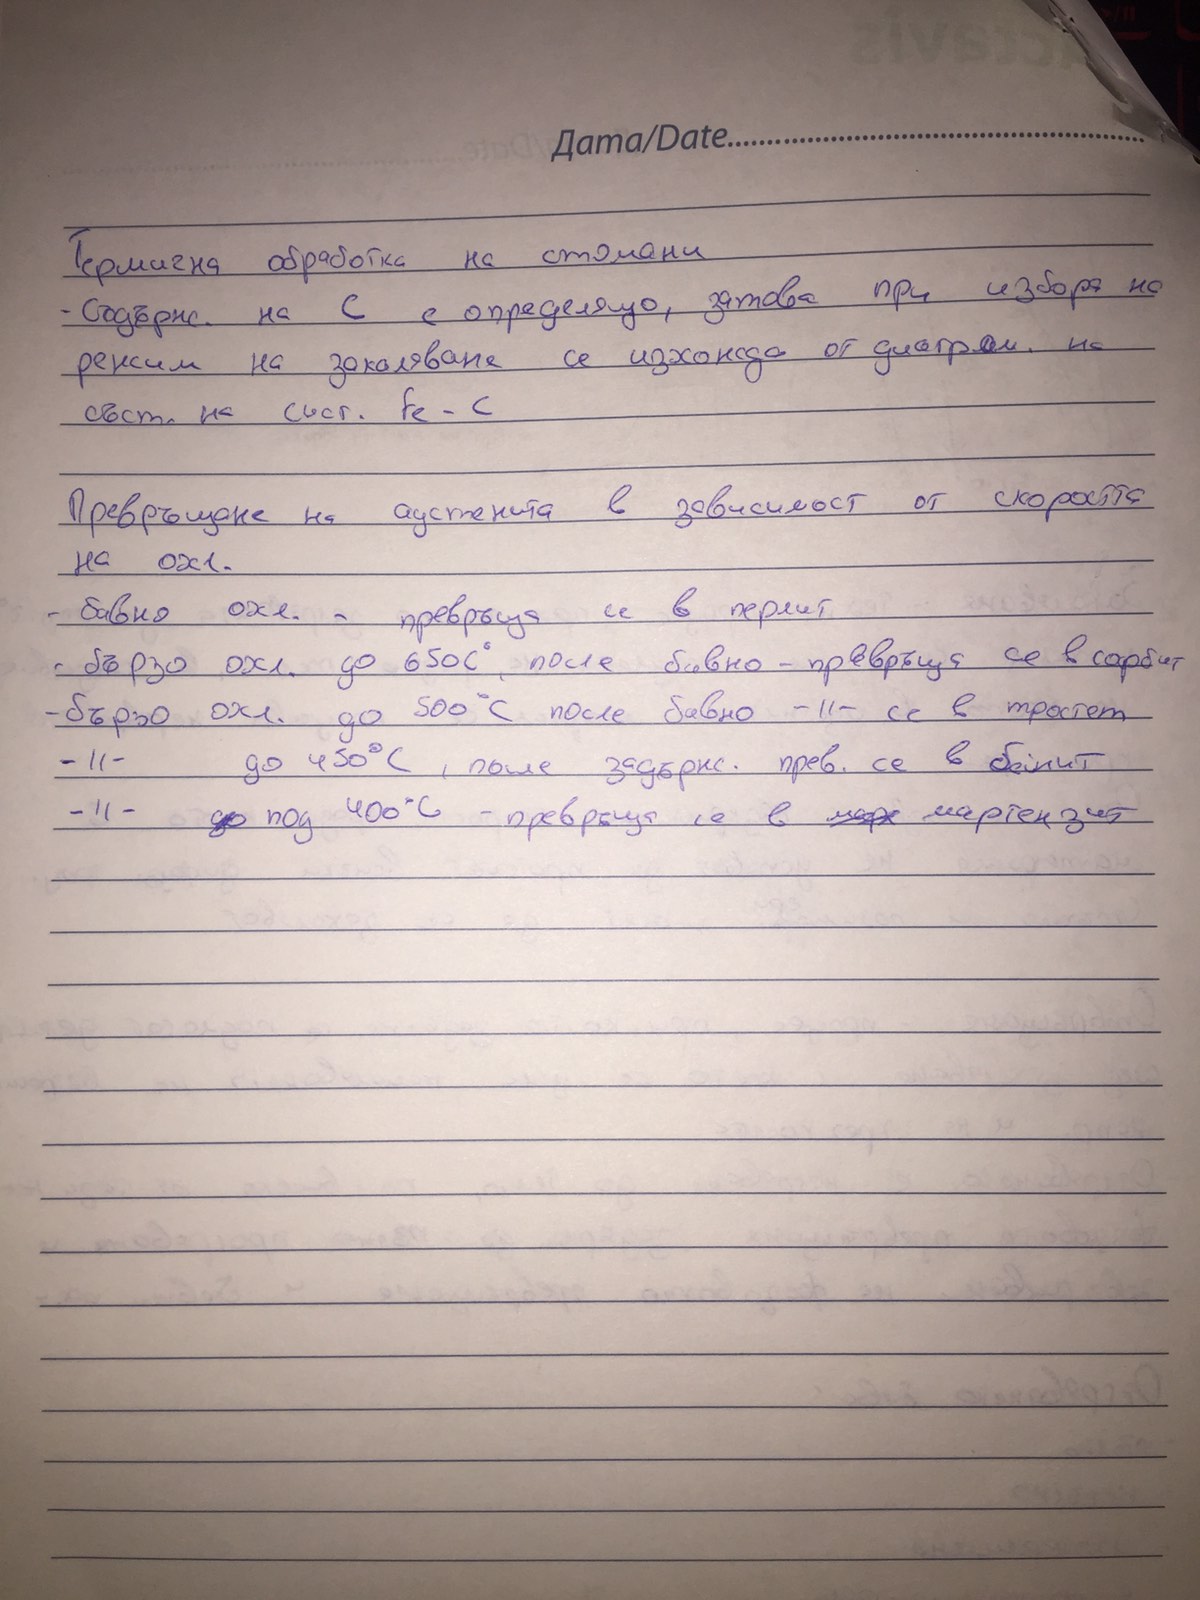 Дата/Date
Термична обработка на стомани
- Съдърж. на C е определящо, затова при избора на
режим на закаляване се изхожда от диаграм. на
съст. на сист. Fe - C
Превръщане на аустенита в зависимост от скоростта
на охл.
- бавно охл. - превръща се в перлит
- бързо охл. до 650C°, после бавно - превръща се в сорбит
- бързо охл. до 500°C после бавно -||- се в тростет
-||- до 450°C, после задърж. прев. се в бейнит
-||- под 400°C - превръща се в мартензит